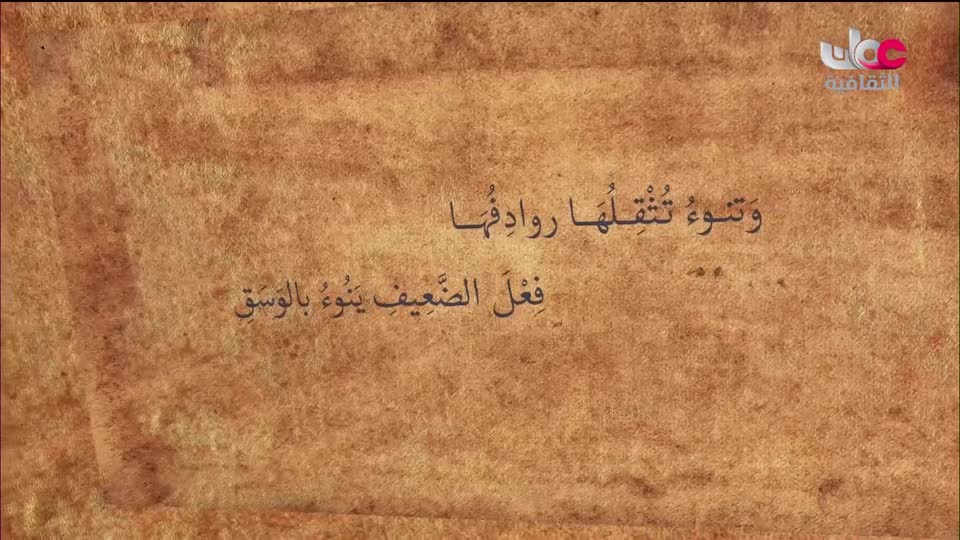 عمان
الثقافية
وَتنوءُ تُثْقِلُهَا روادِفُهَا
فِعْلَ الضَّعِيفِ يَنُوءُ بالوَسَقِ